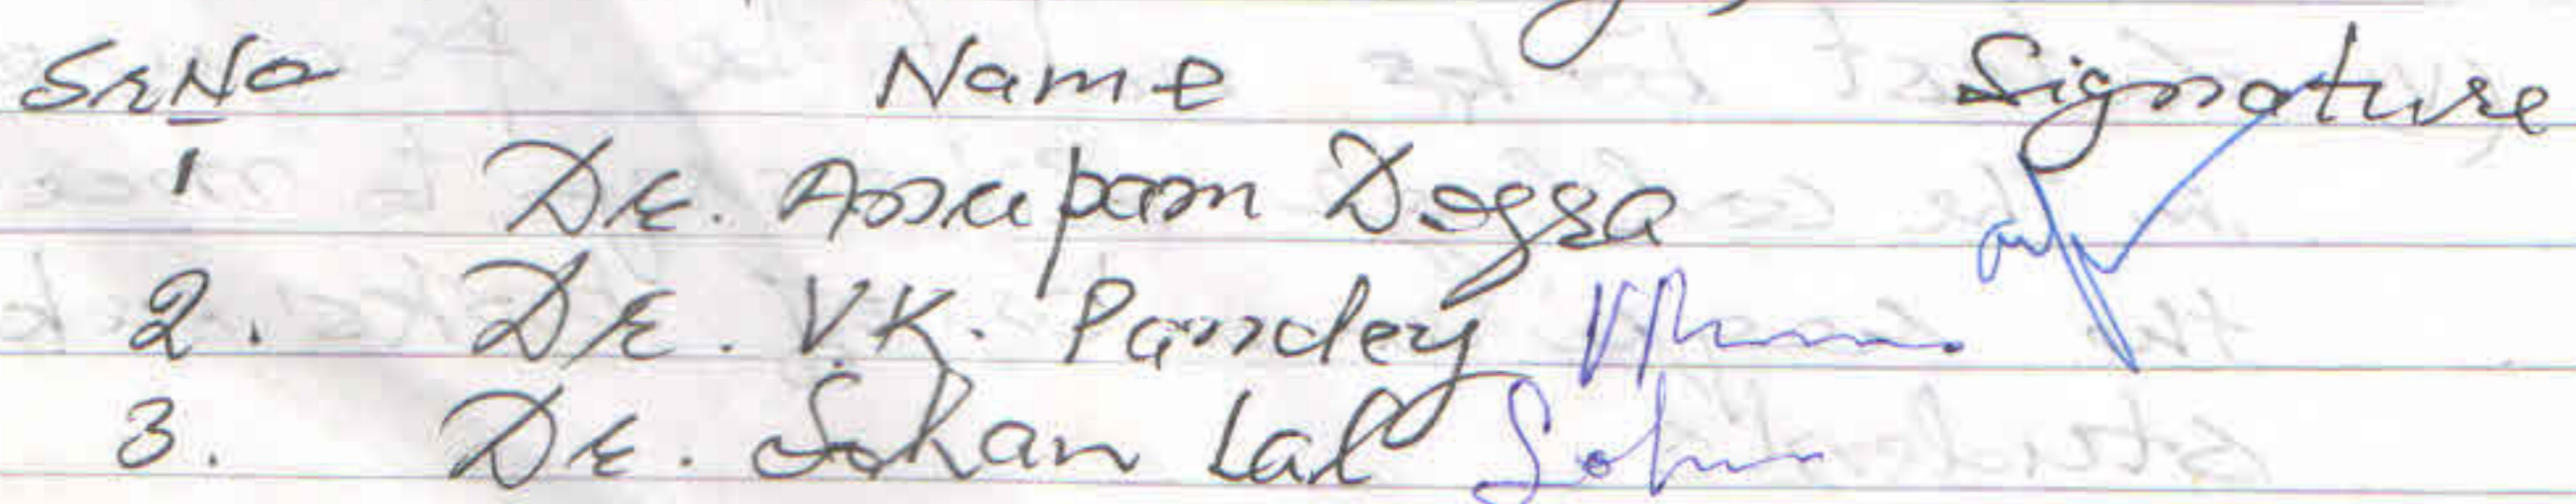 Sr No Name Signature
1 Dr. Anupam Dogra
2. Dr. V.K. Pandey
3. Dr. Sohan Lal Sohan